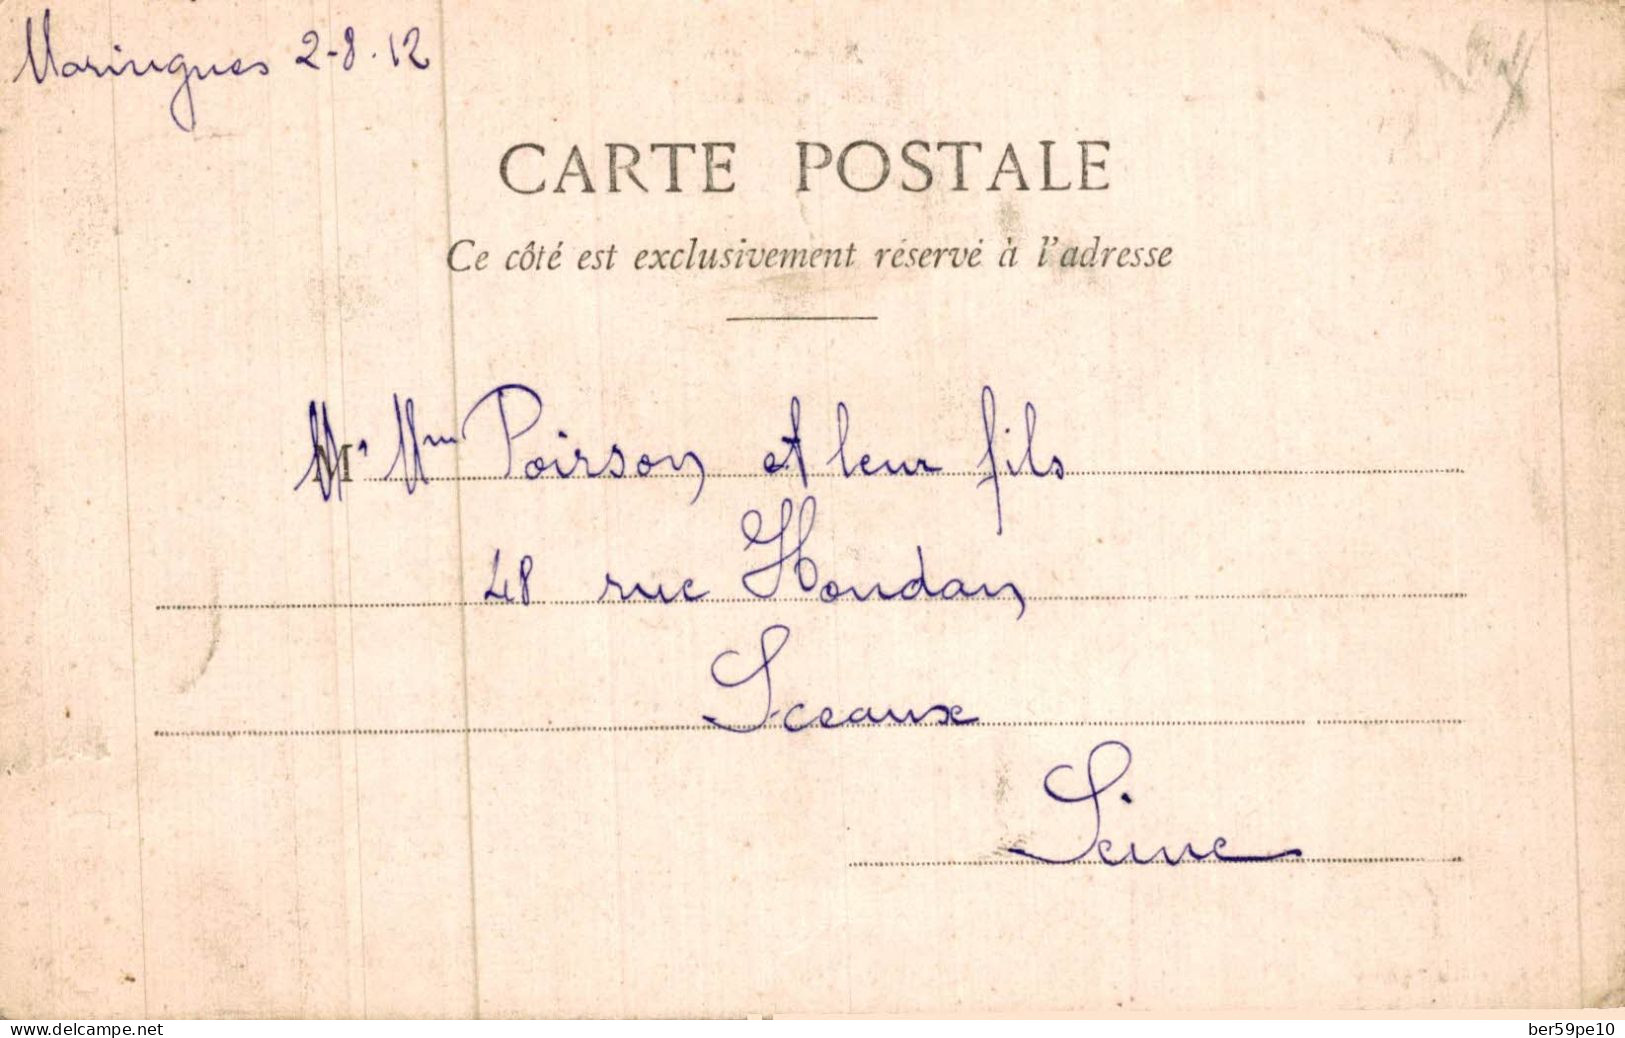 Maringues 2-8.12
CARTE POSTALE
Ce côté est exclusivement réservé à l'adresse
Mr Mme Poirson et leur fils
48 rue Houdan
Sceaux
Seine
www.delcampe.net
ber59pe10